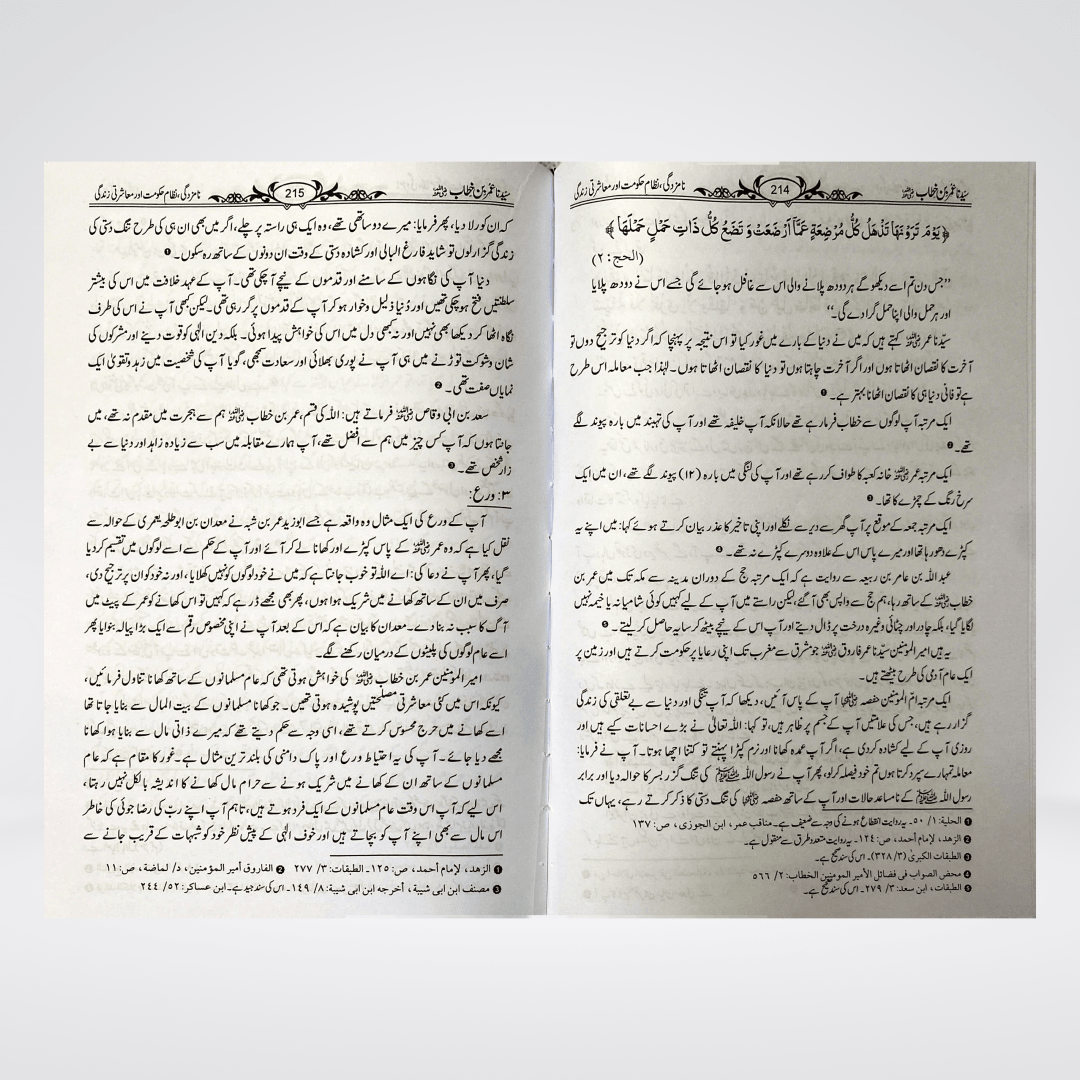 سیّدنا عمر بن خطاب رضی اللہ عنہ 214 نامزدگی، نظام حکومت اور معاشرتی زندگی
﴿یَوْمَ تَرَوْنَهَا تَذْهَلُ كُلُّ مُرْضِعَةٍ عَمَّاۤ اَرْضَعَتْ وَ تَضَعُ كُلُّ ذَاتِ حَمْلٍ حَمْلَهَا﴾
(الحج: ۲)
’’جس دن تم اسے دیکھو گے ہر دودھ پلانے والی اس سے غافل ہو جائے گی جسے اس نے دودھ پلایا
اور ہر حمل والی اپنا حمل گرا دے گی۔‘‘
سیّدنا عمر رضی اللہ عنہ کہتے ہیں کہ میں نے دنیا کے بارے میں غور کیا تو اس نتیجہ پر پہنچا کہ اگر دنیا کو ترجیح دوں تو
آخرت کا نقصان اٹھاتا ہوں اور اگر آخرت چاہتا ہوں تو دنیا کا نقصان اٹھاتا ہوں۔ لہٰذا جب معاملہ اس طرح
ہے تو فانی دنیا ہی کا نقصان اٹھانا بہتر ہے۔ ❶
ایک مرتبہ آپ لوگوں سے خطاب فرما رہے تھے حالانکہ آپ خلیفہ تھے اور آپ کی تہبند میں بارہ پیوند لگے
تھے۔ ❷
ایک مرتبہ عمر رضی اللہ عنہ خانہ کعبہ کا طواف کر رہے تھے اور آپ کی لنگی میں بارہ (۱۲) پیوند لگے تھے، ان میں ایک
سرخ رنگ کے چمڑے کا تھا۔ ❸
ایک مرتبہ جمعہ کے موقع پر آپ گھر سے دیر سے نکلے اور اپنی تاخیر کا عذر بیان کرتے ہوئے کہا: میں اپنے یہ
کپڑے دھو رہا تھا اور میرے پاس اس کے علاوہ دوسرے کپڑے نہ تھے۔ ❹
عبداللہ بن عامر بن ربیعہ سے روایت ہے کہ ایک مرتبہ حج کے دوران مدینہ سے مکہ تک میں عمر بن
خطاب رضی اللہ عنہ کے ساتھ رہا، ہم حج سے واپس بھی آ گئے، لیکن راستے میں آپ کے لیے کہیں کوئی شامیانہ یا خیمہ نہیں
لگایا گیا، بلکہ چادر اور چٹائی وغیرہ درخت پر ڈال دیتے اور آپ اس کے نیچے بیٹھ کر سایہ حاصل کر لیتے۔ ❺
یہ ہیں امیر المؤمنین سیّدنا عمر فاروق رضی اللہ عنہ جو مشرق سے مغرب تک اپنی رعایا پر حکومت کرتے ہیں اور زمین پر
ایک عام آدمی کی طرح بیٹھتے ہیں۔
ایک مرتبہ ام المؤمنین حفصہ رضی اللہ عنہا آپ کے پاس آئیں، دیکھا کہ آپ تنگی اور دنیا سے بے تعلقی کی زندگی
گزار رہے ہیں، جس کی علامتیں آپ کے جسم پر ظاہر ہیں، تو کہا: اللہ تعالیٰ نے بڑے احسانات کیے ہیں اور
روزی آپ کے لیے کشادہ کر دی ہے، اگر آپ عمدہ کھانا اور نرم کپڑا پہنتے تو کتنا اچھا ہوتا۔ آپ نے فرمایا:
معاملہ تمہارے سپرد کرتا ہوں تم خود فیصلہ کر لو، پھر آپ نے رسول اللہ ﷺ کی تنگ گزر بسر کا حوالہ دیا اور برابر
رسول اللہ ﷺ کے نامساعد حالات اور آپ کے ساتھ حفصہ رضی اللہ عنہا کی تنگ دستی کا ذکر کرتے رہے، یہاں تک
❶ الحلیة: ۱/ ۵۰۔ یہ روایت انقطاع ہونے کی وجہ سے ضعیف ہے۔ مناقب عمر، ابن الجوزی، ص: ۱۳۷
❷ الزهد، لإمام أحمد، ص: ۱۲۴۔ یہ روایت متعدد طرق سے منقول ہے۔
❸ الطبقات الکبریٰ (۳/ ۳۲۸)۔ اس کی سند صحیح ہے۔
❹ محض الصواب فی فضائل الأمیر المومنین الخطاب: ۲/ ۵۶۶
❺ الطبقات، ابن سعد: ۳/ ۲۷۹۔ اس کی سند صحیح ہے۔
سیّدنا عمر بن خطاب رضی اللہ عنہ 215 نامزدگی، نظام حکومت اور معاشرتی زندگی
کہ ان کو رلا دیا، پھر فرمایا: میرے دو ساتھی تھے، وہ ایک ہی راستہ پر چلے، اگر میں بھی ان ہی کی طرح تنگ دستی کی
زندگی گزار لوں تو شاید فارغ البالی اور کشادہ دستی کے وقت ان دونوں کے ساتھ رہ سکوں۔ ❶
دنیا آپ کی نگاہوں کے سامنے اور قدموں کے نیچے آ چکی تھی۔ آپ کے عہد خلافت میں اس کی بیشتر
سلطنتیں فتح ہو چکی تھیں اور دُنیا ذلیل و خوار ہو کر آپ کے قدموں پر گر رہی تھی۔ لیکن کبھی آپ نے اس کی طرف
نگاہ اٹھا کر دیکھا بھی نہیں اور نہ کبھی دل میں اس کی خواہش پیدا ہوئی۔ بلکہ دین الٰہی کو قوت دینے اور مشرکوں کی
شان و شوکت توڑنے میں ہی آپ نے پوری بھلائی اور سعادت سمجھی، گویا آپ کی شخصیت میں زہد و تقویٰ ایک
نمایاں صفت تھی۔ ❷
سعد بن ابی وقاص رضی اللہ عنہ فرماتے ہیں: اللہ کی قسم، عمر بن خطاب رضی اللہ عنہ ہم سے ہجرت میں مقدم نہ تھے، میں
جانتا ہوں کہ آپ کس چیز میں ہم سے افضل تھے، آپ ہمارے مقابلہ میں سب سے زیادہ زاہد اور دنیا سے بے
زار شخص تھے۔ ❸
۳: ورع:
آپ کے ورع کی ایک مثال وہ واقعہ ہے جسے ابوزید عمر بن شبہ نے معدان بن ابو طلحہ یعمری کے حوالہ سے
نقل کیا ہے کہ وہ عمر رضی اللہ عنہ کے پاس کپڑے اور کھانا لے کر آئے اور آپ کے حکم سے اسے لوگوں میں تقسیم کر دیا
گیا، پھر آپ نے دعا کی: اے اللہ تو خوب جانتا ہے کہ میں نے خود لوگوں کو نہیں کھلایا، اور نہ خود کو ان پر ترجیح دی،
صرف میں ان کے ساتھ کھانے میں شریک ہوا ہوں، پھر بھی مجھے ڈر ہے کہ کہیں تو اس کھانے کو عمر کے پیٹ میں
آگ کا سبب نہ بنا دے۔ معدان کا بیان ہے کہ اس کے بعد آپ نے اپنی مخصوص رقم سے ایک بڑا پیالہ بنوایا پھر
اسے عام لوگوں کی پلیٹوں کے درمیان رکھنے لگے۔
امیر المؤمنین عمر بن خطاب رضی اللہ عنہ کی خواہش ہوتی تھی کہ عام مسلمانوں کے ساتھ کھانا تناول فرمائیں،
کیونکہ اس میں کئی معاشرتی مصلحتیں پوشیدہ ہوتی تھیں۔ جو کھانا مسلمانوں کے بیت المال سے بنایا جاتا تھا
اسے کھانے میں حرج محسوس کرتے تھے، اسی وجہ سے حکم دیتے تھے کہ میرے ذاتی مال سے بنایا ہوا کھانا
مجھے دیا جائے۔ آپ کی یہ احتیاط ورع اور پاک دامنی کی بلند ترین مثال ہے۔ غور کا مقام ہے کہ عام
مسلمانوں کے ساتھ ان کے کھانے میں شریک ہونے سے حرام مال کھانے کا اندیشہ بالکل نہیں رہتا،
اس لیے کہ آپ اس وقت عام مسلمانوں کے ایک فرد ہوتے ہیں، تاہم آپ اپنے ربّ کی رضا جوئی کی خاطر
اس مال سے بھی اپنے آپ کو بچاتے ہیں اور خوف الٰہی کے پیش نظر خود کو شبہات کے قریب جانے سے
❶ الزهد، لإمام أحمد، ص: ۱۲۵۔ الطبقات: ۳/ ۲۷۷ ❷ الفاروق أمیر المؤمنین، د/ لماضة، ص: ۱۱
❸ مصنف ابن ابی شیبة، أخرجه ابن ابی شیبة: ۸/ ۱۴۹۔ اس کی سند جید ہے۔ ابن عساکر: ۵۲/ ۲۴۴